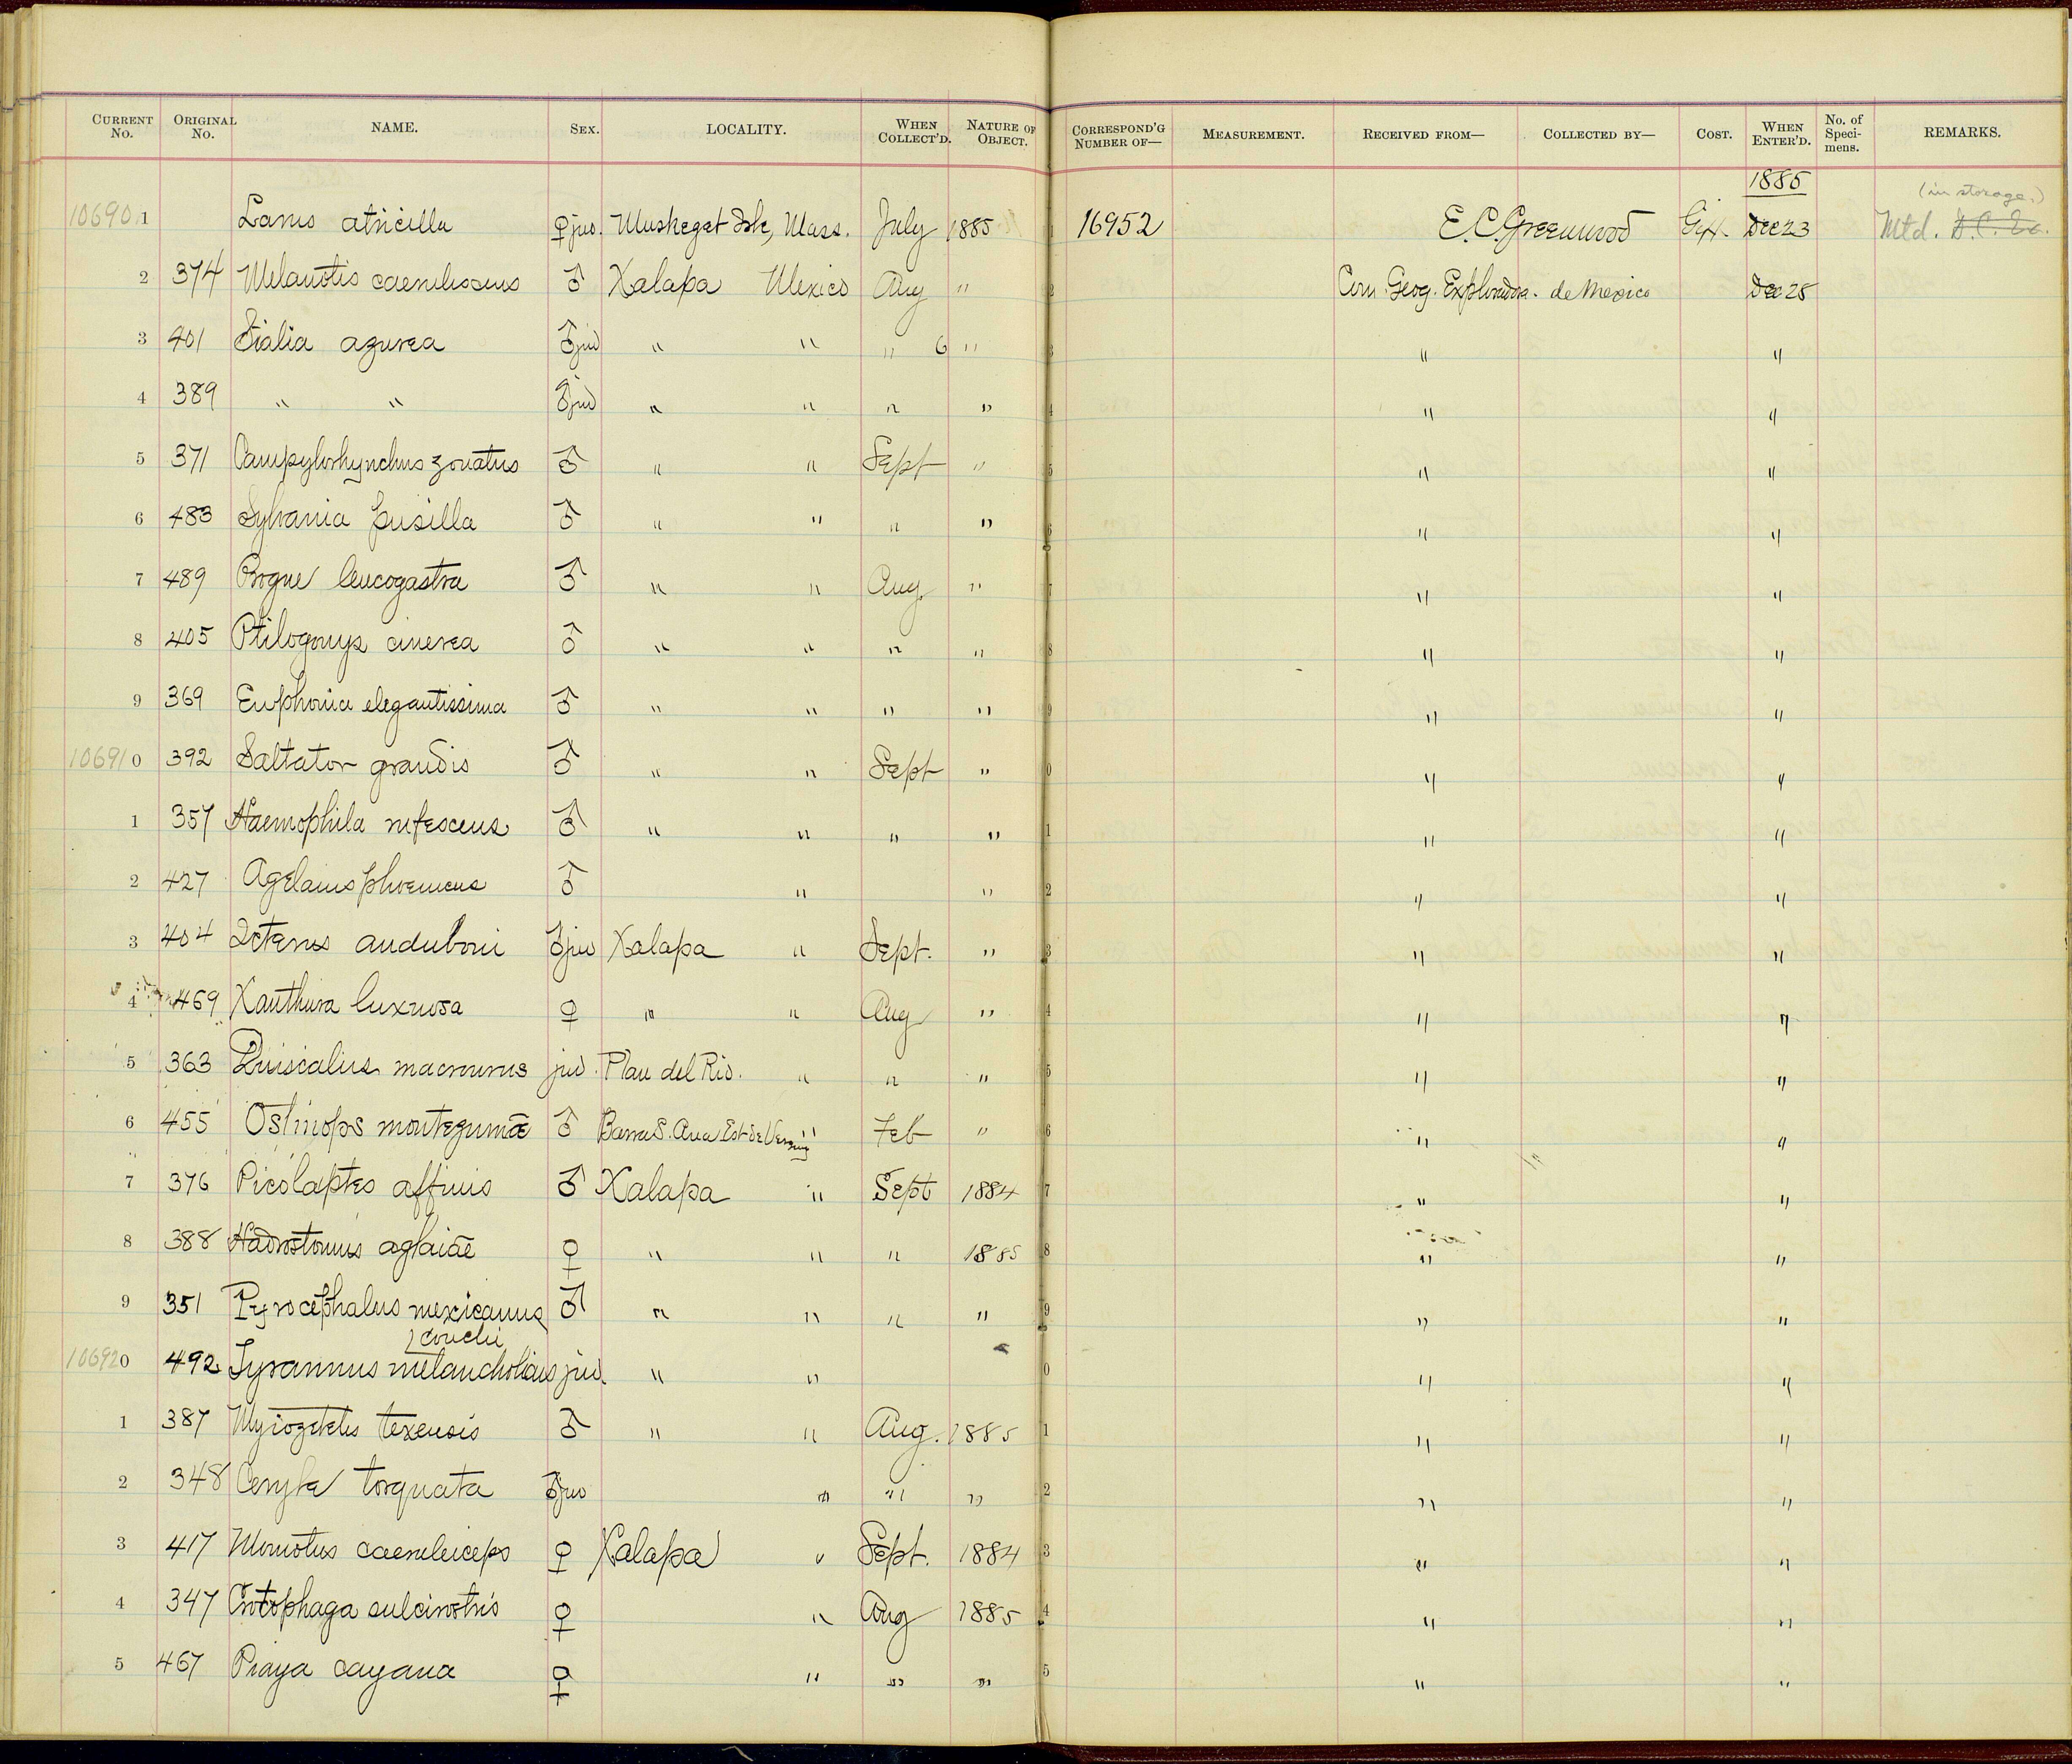 CURRENT No. ORIGINAL No. NAME. SEX. LOCALITY. WHEN COLLECT'D. NATURE OF OBJECT. CORRESPOND'G NUMBER OF— MEASUREMENT. RECEIVED FROM— COLLECTED BY— COST. WHEN ENTER'D. No. of Specimens. REMARKS.
1885 (in storage.)
10690 1 Larus atricilla ♀ juv. Muskeget Isle, Mass. July 1885 1 16952 E. C. Greenwood Gift. Dec 23 Mtd. D. C. Ex.
2 374 Melanotis caerulescens ♂ Xalapa Mexico Aug " 2 Com. Geog. Exploradora. de Mexico Dec 25
3 401 Sialia azurea ♂ juv " " " 6 " 3 " "
4 389 " " ♂ juv " " " " 4 " "
5 371 Campylorhynchus zonatus ♂ " " Sept " 5 " "
6 483 Sylvania pusilla ♂ " " " " 6 " "
7 489 Progne leucogastra ♂ " " Aug. " 7 " "
8 405 Ptilogonys cinerea ♂ " " " " 8 " "
9 369 Euphonia elegantissima ♂ " " " " 9 " "
10691 0 392 Saltator grandis ♂ " " Sept " 0 " "
1 357 Haemophila rufescens ♂ " " " " 1 " "
2 427 Agelaius phoeniceus ♂ " " 2 " "
3 404 Icterus auduboni ♂ juv Xalapa " Sept. " 3 " "
4 469 Xanthura luxuosa ♀ " " Aug " 4 " "
5 363 Quiscalus macrourus juv. Plan del Rio. " " " 5 " "
6 455 Ostinops montezumæ ♂ Barra S. Ana Est de Vera " Feb " 6 " "
7 376 Picolaptes affinis ♂ Xalapa " Sept 1884 7 " "
8 388 Hadrostomus aglaiæ ♀ " " " 1885 8 " "
9 351 Pyrocephalus mexicanus ♂ " " " " 9 " "
couchi
10692 0 492 Tyrannus melancholicus juv. " " 0 " "
1 387 Myiozetetes texensis ♂ " " Aug. 1885 1 " "
2 348 Ceryle torquata ♂ juv " " " 2 " "
3 417 Momotus caeruleiceps ♀ Xalapa " Sept. 1884 3 " "
4 347 Crotophaga sulcirostris ♀ " Aug 1885 4 " "
5 467 Piaya cayana ♀ " " " 5 " "